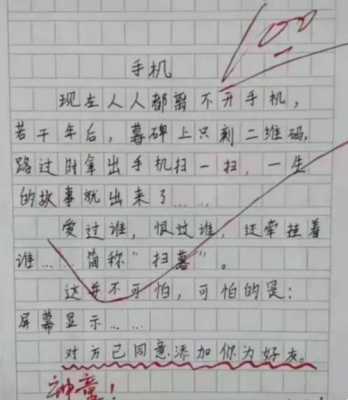 100
手机
现在人人都离不开手机，
若干年后，墓碑上只剩二维码，
路过时拿出手机扫一扫，一生
的故事就出来了……
爱过谁，恨过谁，还牵挂着
谁……简称“扫墓”。
这并不可怕，可怕的是：
屏幕显示……
对方已同意添加你为好友。
神童！